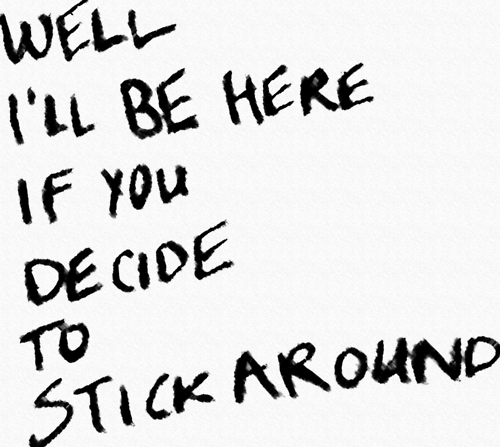 WELL
I'LL BE HERE
IF YOU
DECIDE
TO
STICK AROUND